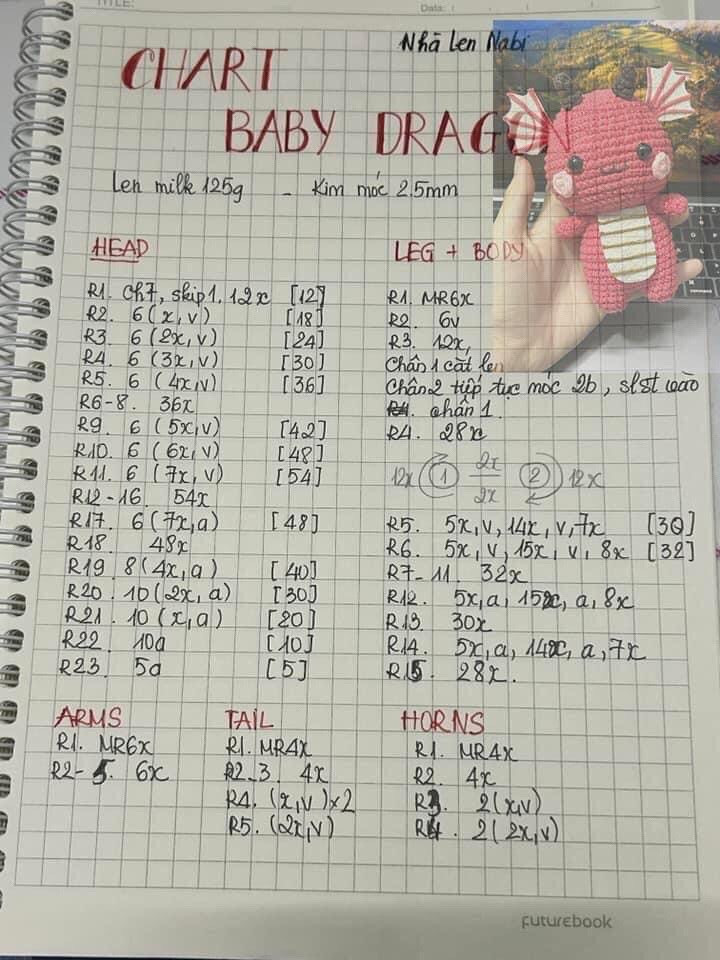 TITLE:
Date:
Nhà Len Nabi
CHART
BABY DRAGON
Len milk 125g - Kim móc 2.5mm
HEAD
R1. Ch7, skip1. 12x [12]
R2. 6(x,v) [18]
R3. 6(2x,v) [24]
R4. 6(3x,v) [30]
R5. 6(4x,v) [36]
R6-8. 36x
R9. 6(5x,v) [42]
R10. 6(6x,v) [48]
R11. 6(7x,v) [54]
R12-16 54x
R17. 6(7x,a) [48]
R18. 48x
R19. 8(4x,a) [40]
R20. 10(2x,a) [30]
R21. 10(x,a) [20]
R22. 10a [10]
R23. 5a [5]
LEG + BODY
R1. MR6x
R2. 6v
R3. 12x,
Chân 1 cắt len
Chân 2 tiếp tục móc 2b, slst vào
chân 1.
R4. 28x
12x 1 2x 2 12x
2x
R5. 5x,v,14x,v,7x [30]
R6. 5x,v,15x,v,8x [32]
R7-11. 32x
R12. 5x,a,15x,a,8x
R13. 30x
R14. 5x,a,14x,a,7x
R15. 28x.
ARMS
R1. MR6x
R2-5. 6x
TAIL
R1. MR4x
R2-3. 4x
R4. (x,v)x2
R5. (2x,v)
HORNS
R1. MR4x
R2. 4x
R3. 2(x,v)
R4. 2(2x,v)
FUTUREBOOK